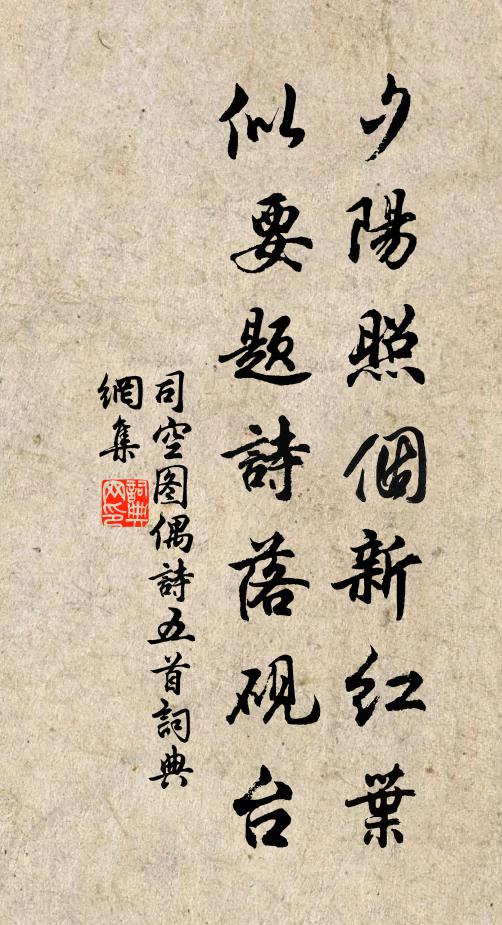 夕陽照個新红葉
似要题詩落砚台
司空图偶詩五首詞典
網集
詞典
网印